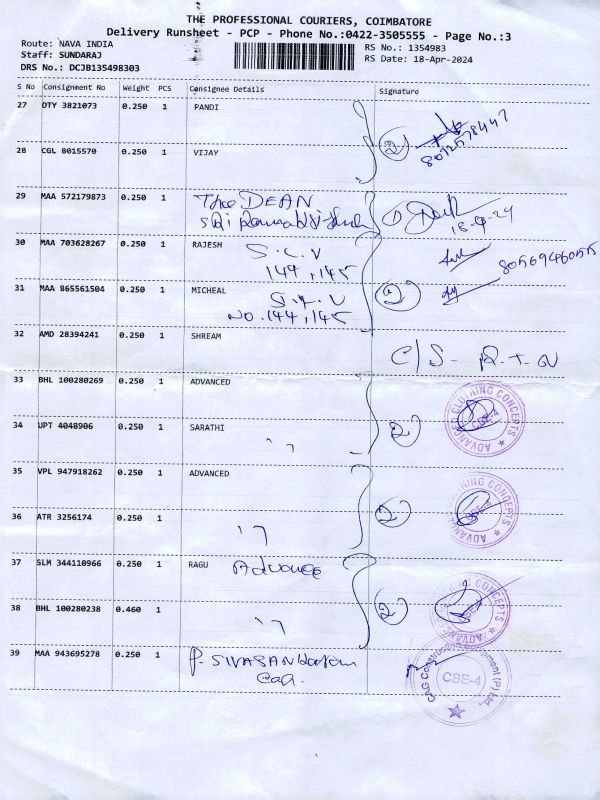 THE PROFESSIONAL COURIERS, COIMBATORE
Delivery Runsheet - PCP - Phone No.:0422-3505555 - Page No.:3
Route: NAVA INDIA
RS No.: 1354983
Staff: SUNDARAJ
RS Date: 18-Apr-2024
DRS No.: DCJB135498303
S No Consignment No Weight PCS Consignee Details Signature
27 OTY 3821073 0.250 1 PANDI
2
28 CGL 8015570 0.250 1 VIJAY
29 MAA 572179873 0.250 1 The DEAN
Sri
1
18-4-24
30 MAA 703628267 0.250 1 RAJESH S.L.V
144,145
31 MAA 865561504 0.250 1 MICHEAL S.L.V
NO.144,145
2
32 AMD 28394241 0.250 1 SHREAM
C/S -
33 BHL 100280269 0.250 1 ADVANCED
ADVANCED CLOTHING CONCEPTS
CBE-4
34 UPT 4048906 0.250 1 SARATHI
2
35 VPL 947918262 0.250 1 ADVANCED
2
36 ATR 3256174 0.250 1
37 SLM 344110966 0.250 1 RAGU
38 BHL 100280238 0.460 1
2
39 MAA 943695278 0.250 1 P. SIVASANKARAN
CAG
CBE-4